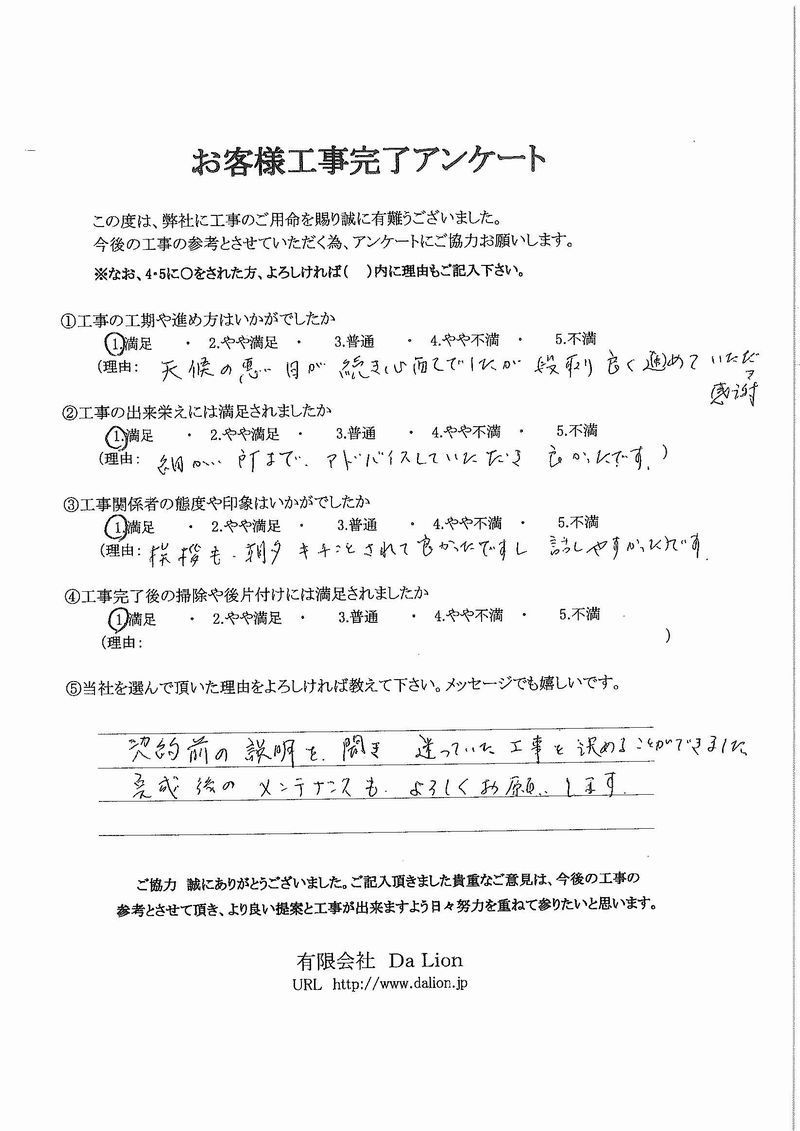 お客様工事完了アンケート
この度は、弊社に工事のご用命を賜り誠に有難うございました。
今後の工事の参考とさせていただく為、アンケートにご協力お願いします。
※なお、4・5に○をされた方、よろしければ( )内に理由もご記入下さい。
①工事の工期や進め方はいかがでしたか
1.満足 ・ 2.やや満足 ・ 3.普通 ・ 4.やや不満 ・ 5.不満
(理由: 天候の悪い日が続き心配でしたが段取り良く進めていただ
感謝
②工事の出来栄えには満足されましたか
1.満足 ・ 2.やや満足 ・ 3.普通 ・ 4.やや不満 ・ 5.不満
(理由: 細かい所まで、アドバイスしていただき 良かったです。)
③工事関係者の態度や印象はいかがでしたか
1.満足 ・ 2.やや満足 ・ 3.普通 ・ 4.やや不満 ・ 5.不満
(理由: 挨拶も、朝夕キチンとされて良かったですし 話しやすかったです。
④工事完了後の掃除や後片付けには満足されましたか
1.満足 ・ 2.やや満足 ・ 3.普通 ・ 4.やや不満 ・ 5.不満
(理由: )
⑤当社を選んで頂いた理由をよろしければ教えて下さい。メッセージでも嬉しいです。
契約前の説明を、聞き 迷っていた工事を決めることができました。
完成後のメンテナンスも、よろしくお願いします。
ご協力 誠にありがとうございました。ご記入頂きました貴重なご意見は、今後の工事の
参考とさせて頂き、より良い提案と工事が出来ますよう日々努力を重ねて参りたいと思います。
有限会社 Da Lion
URL http://www.dalion.jp